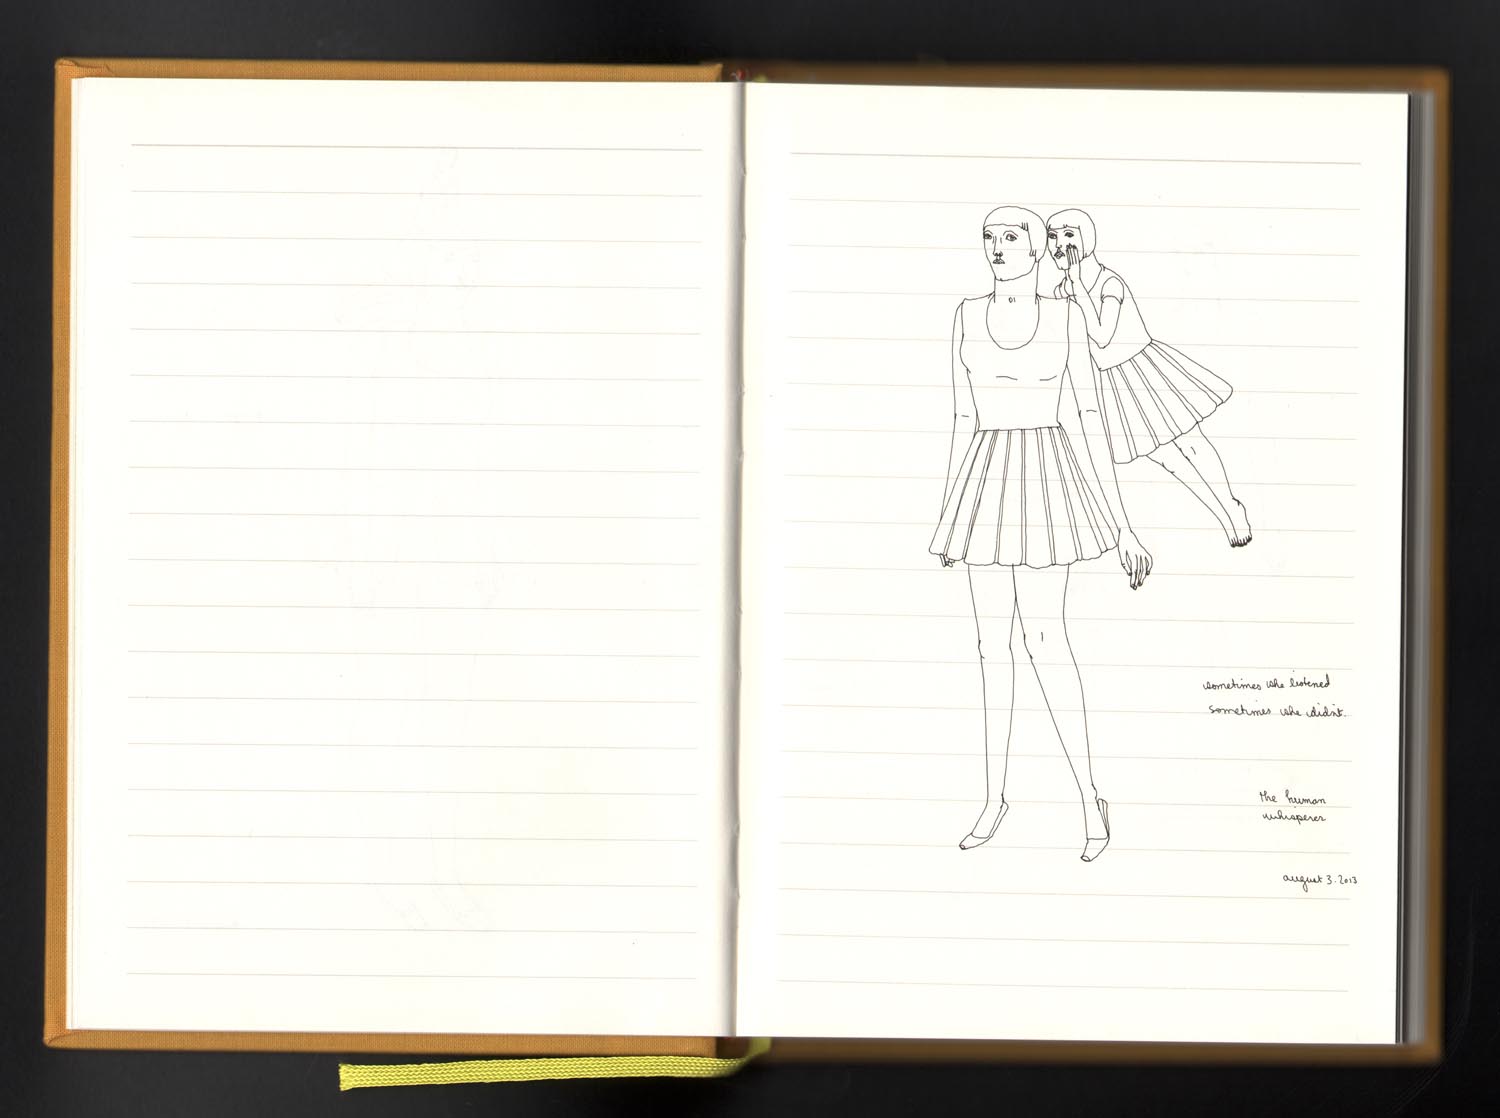 sometimes she listened
sometimes she didn't.
the human
whisperer
august 3. 2013